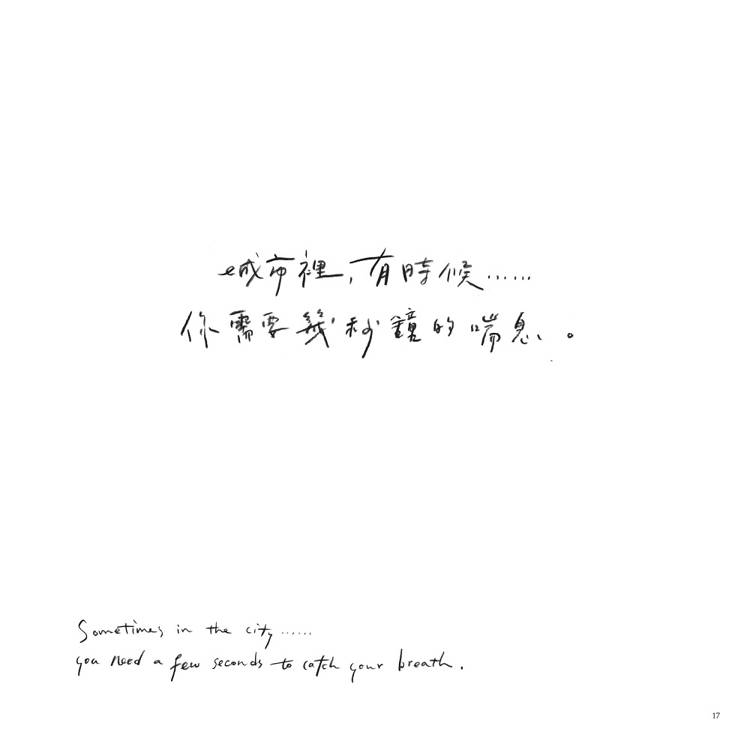 城市裡，有時候……
你需要幾秒鏡的喘息。
Sometimes in the city......
you need a few seconds to catch your breath.
17